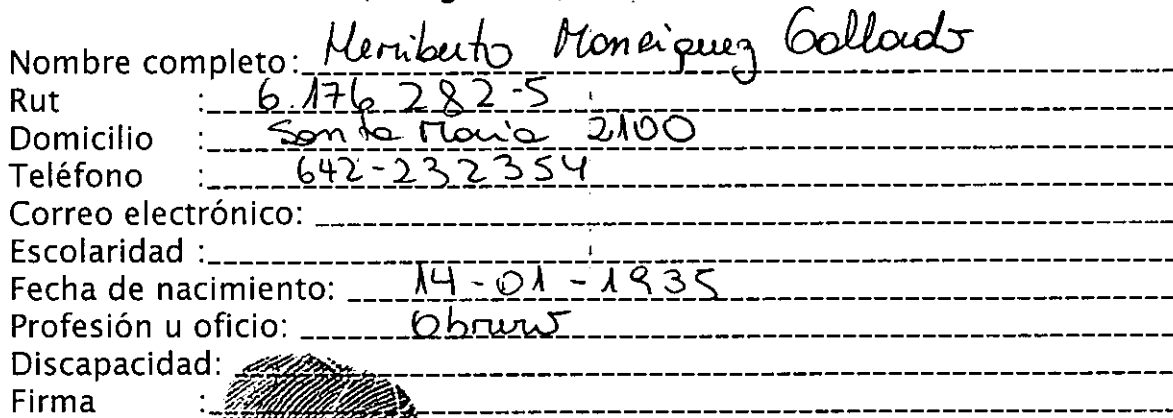 Nombre completo: Heriberto Monsiguez Gallardo
Rut : 6.176.282-5
Domicilio : Santa Maria 2100
Teléfono : 642-232354
Correo electrónico:
Escolaridad :
Fecha de nacimiento: 14-01-1935
Profesión u oficio: Obrero
Discapacidad:
Firma :